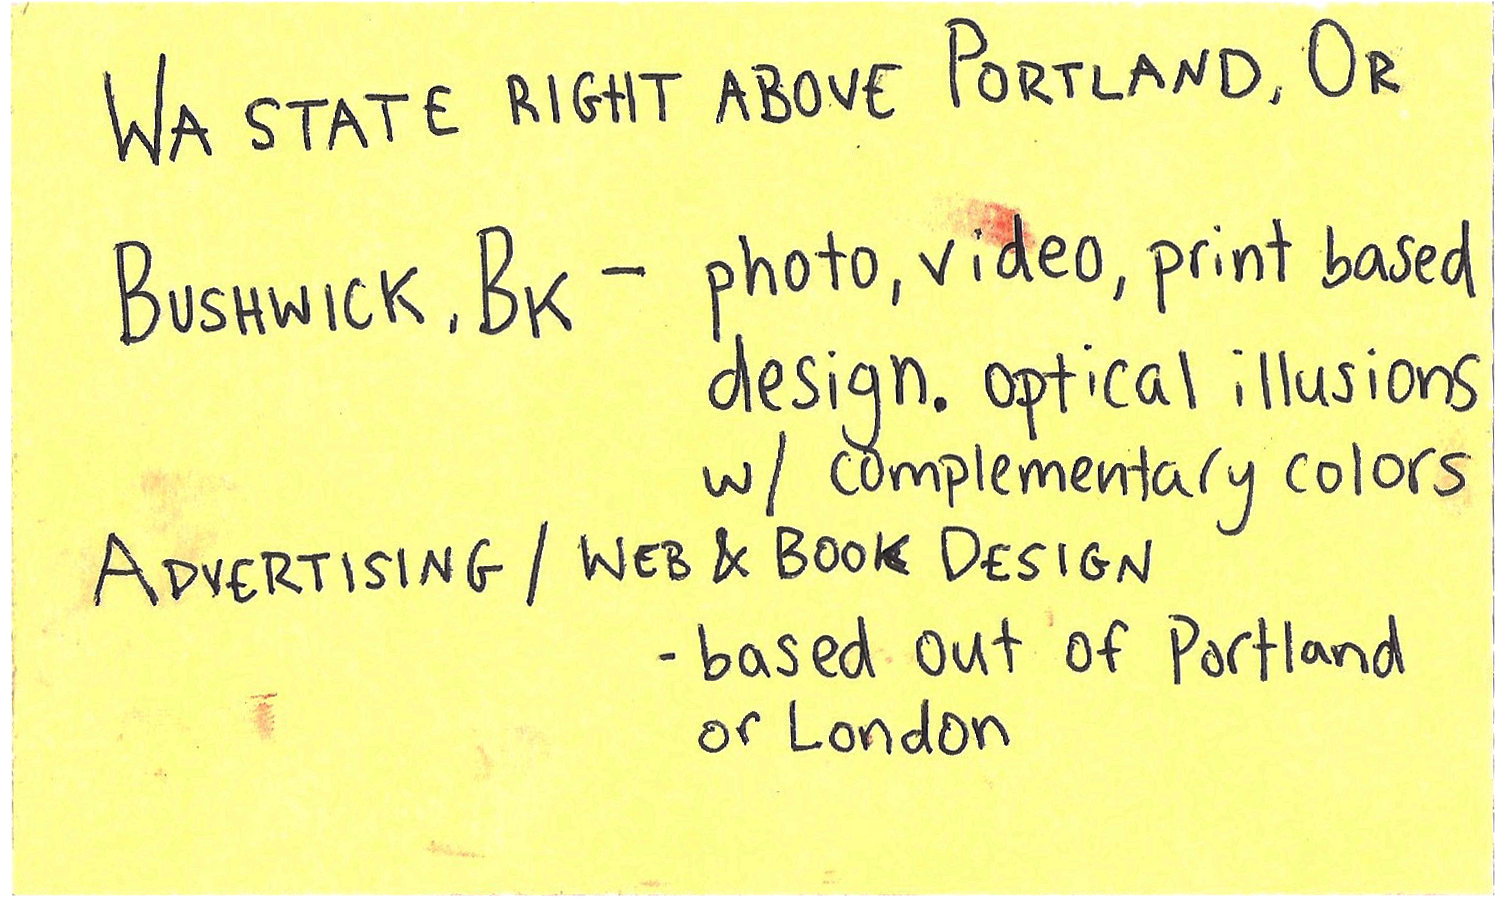 WA STATE RIGHT ABOVE PORTLAND, OR
BUSHWICK, BK – photo, video, print based
design. optical illusions
w/ complementary colors
ADVERTISING / WEB & BOOK DESIGN
- based out of Portland
or London